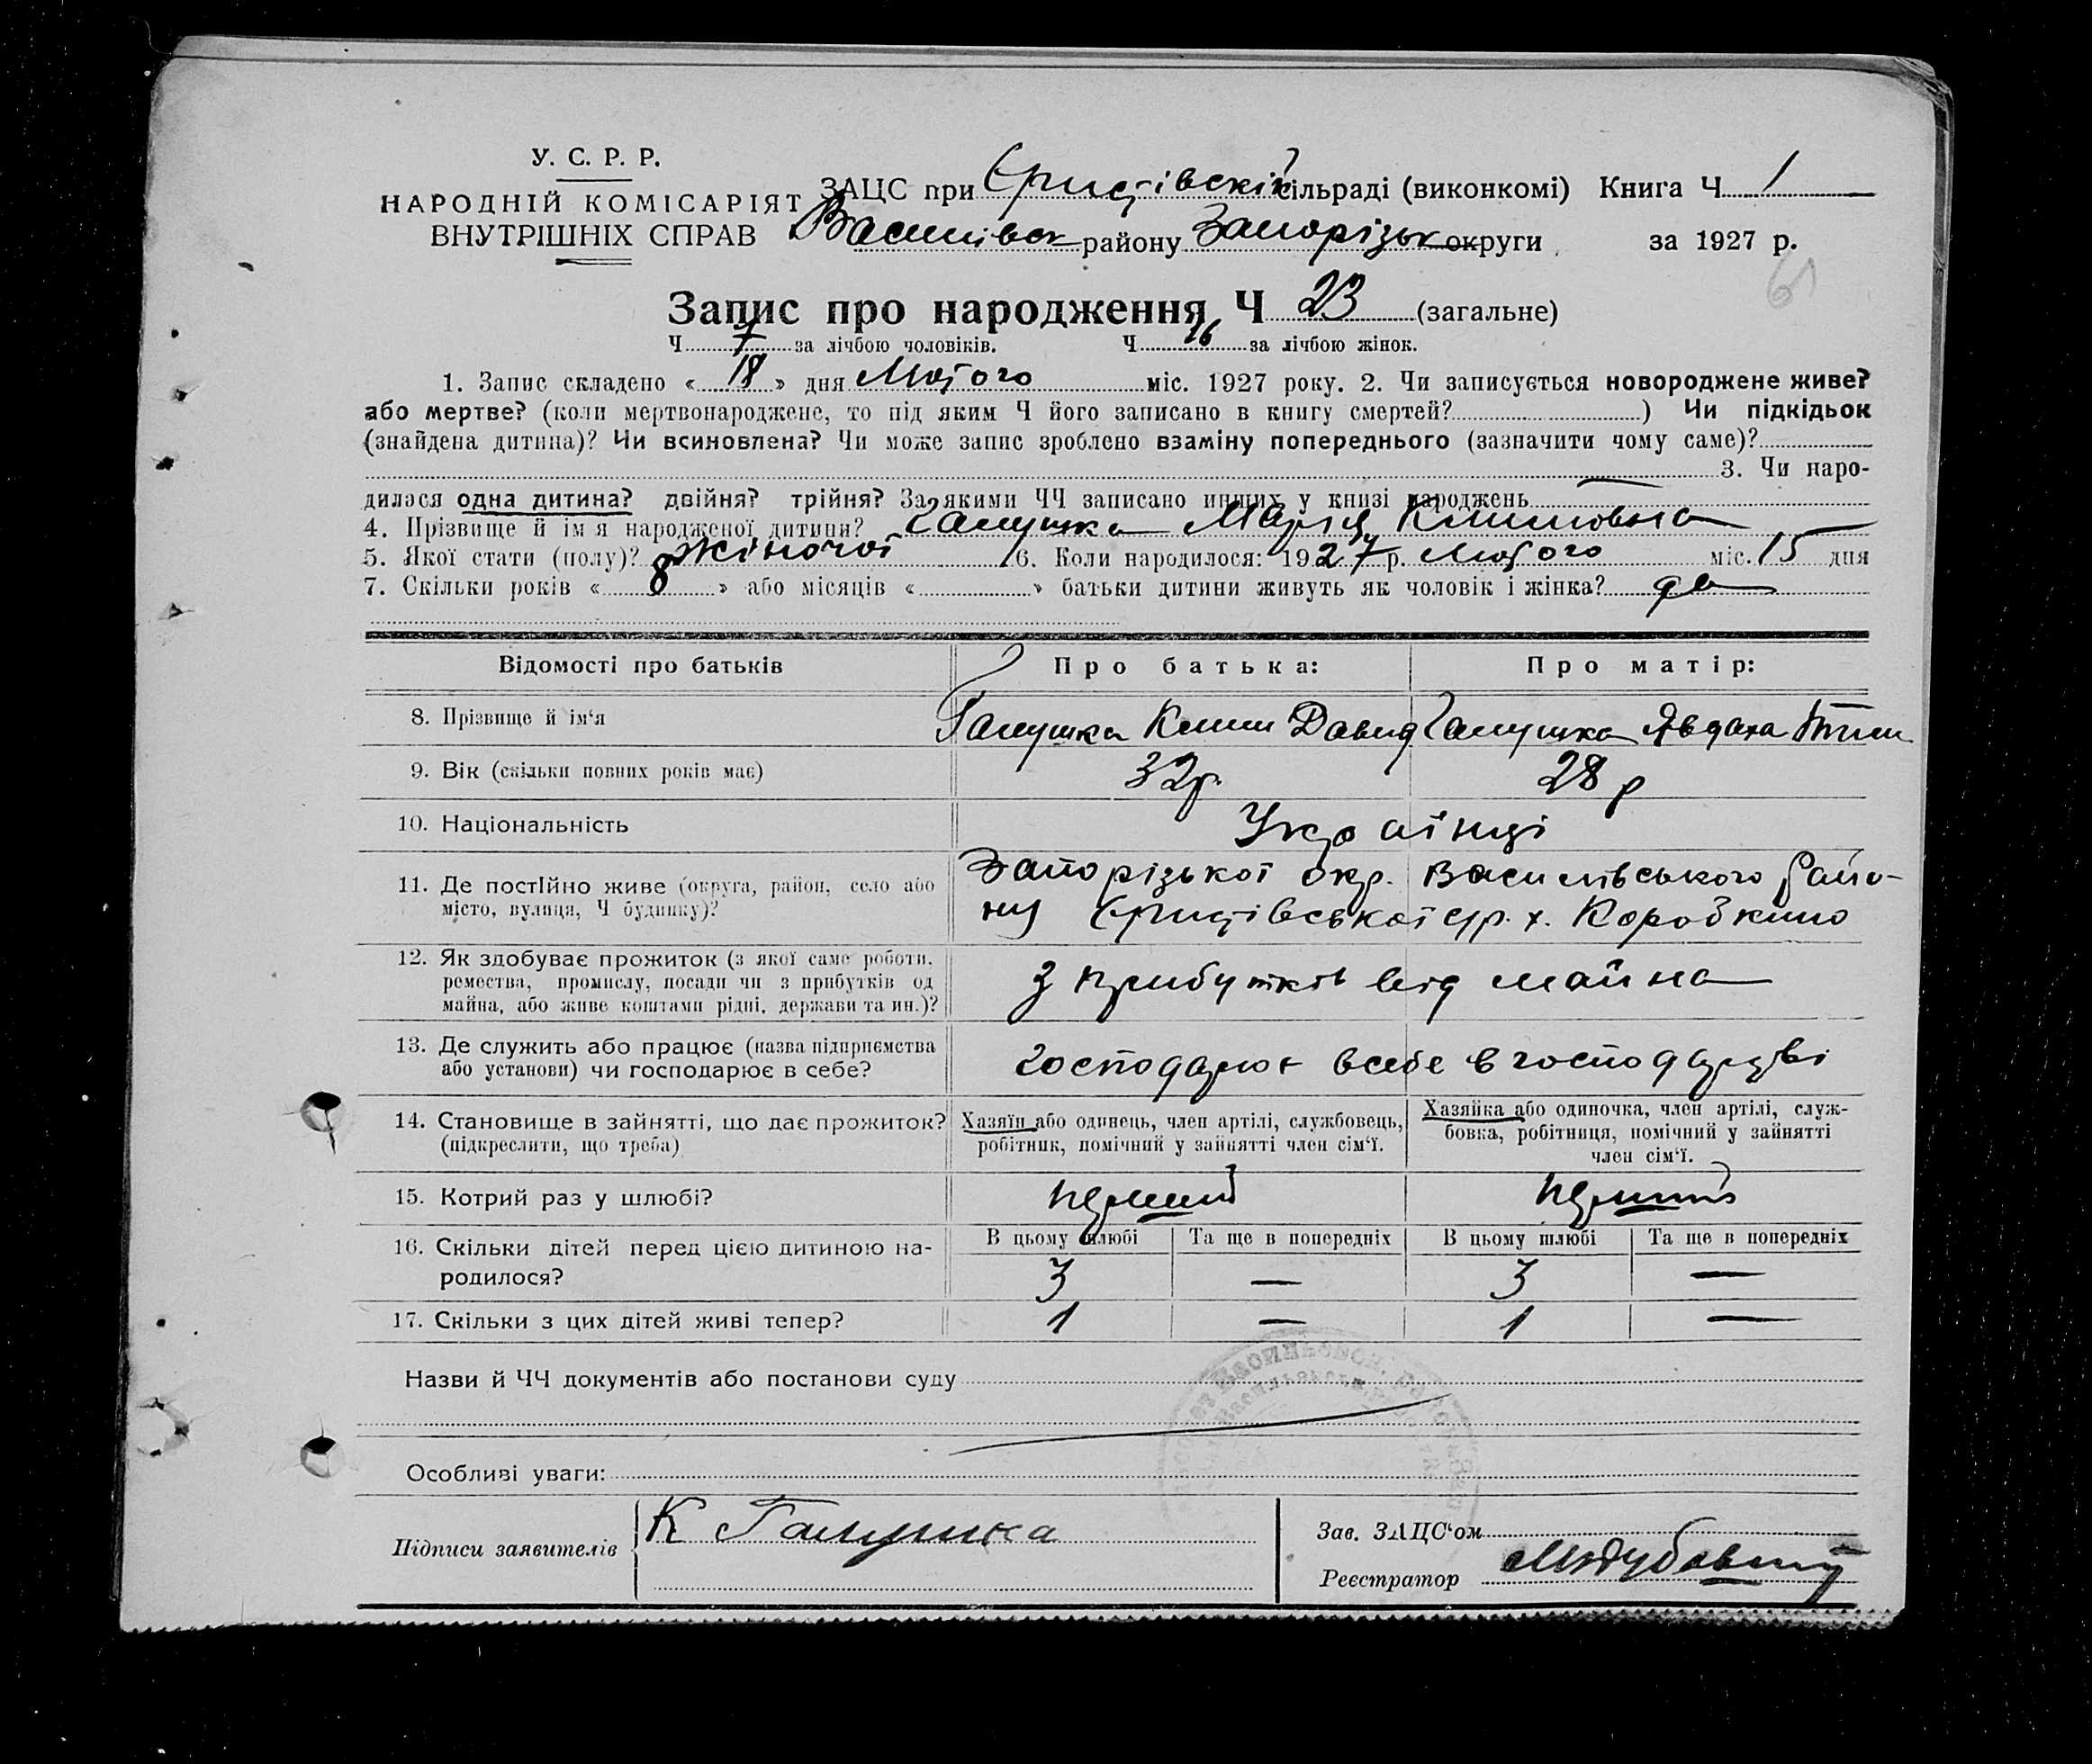 У. С. Р. Р.
НАРОДНІЙ КОМІСАРІЯТ
ВНУТРІШНІХ СПРАВ
ЗАЦС при Єристівскій сільраді (виконкомі) Книга Ч 1
Василівськ району Запорізьк округи за 1927 р.
61
Запис про народження Ч 23 (загальне)
Ч 7 за лічбою чоловіків. Ч 16 за лічбою жінок.
1. Запис складено « 18 » дня Лютого міс. 1927 року. 2. Чи записується новороджене живе?
або мертве? (коли мертвонароджене, то під яким Ч його записано в книгу смертей? ) Чи підкідьок
(знайдена дитина)? Чи всиновлена? Чи може запис зроблено взаміну попереднього (зазначити чому саме)?
3. Чи наро-
дилася одна дитина? двійня? трійня? За якими ЧЧ записано инших у книзі народжень
4. Прізвище й ім'я народженої дитини? Галушка Марія Климовна
5. Якої стати (полу)? жіночої 6. Коли народилося: 1927 р. Лютого міс. 15 дня
7. Скільки років « 8 » або місяців « » батьки дитини живуть як чоловік і жінка? да
Відомості про батьків Про батька: Про матір:
8. Прізвище й ім‘я Галушка Клим Давид Галушка Явдоха Тим
9. Вік (скільки повних років має) 32 р. 28 р
10. Національність Українці
11. Де постійно живе (округа, район, село або
місто, вулиця, Ч будинку)?
Запорізької окр. Василівського райо-
ну Єристівської с/р. х. Коробкино
12. Як здобуває прожиток (з якої саме роботи,
ремества, промислу, посади чи з прибутків од
майна, або живе коштами рідні, держави та ин.)?
З прибутків від майна
13. Де служить або працює (назва підприємства
або установи) чи господарює в себе?
господарює в себе в господарстві
14. Становище в зайнятті, що дає прожиток?
(підкреслити, що треба)
Хазяїн або одинець, член артілі, службовець,
робітник, помічний у зайнятті член сім‘ї.
Хазяйка або одиночка, член артілі, служ-
бовка, робітниця, помічний у зайнятті
член сім‘ї.
15. Котрий раз у шлюбі? перший перший
16. Скільки дітей перед цією дитиною на-
родилося?
В цьому шлюбі Та ще в попередніх В цьому шлюбі Та ще в попередніх
3 — 3 —
17. Скільки з цих дітей живі тепер? 1 — 1 —
Назви й ЧЧ документів або постанови суду
Особливі уваги:
Підписи заявителів К Галушка
Зав. ЗАЦС‘ом
Реєстратор